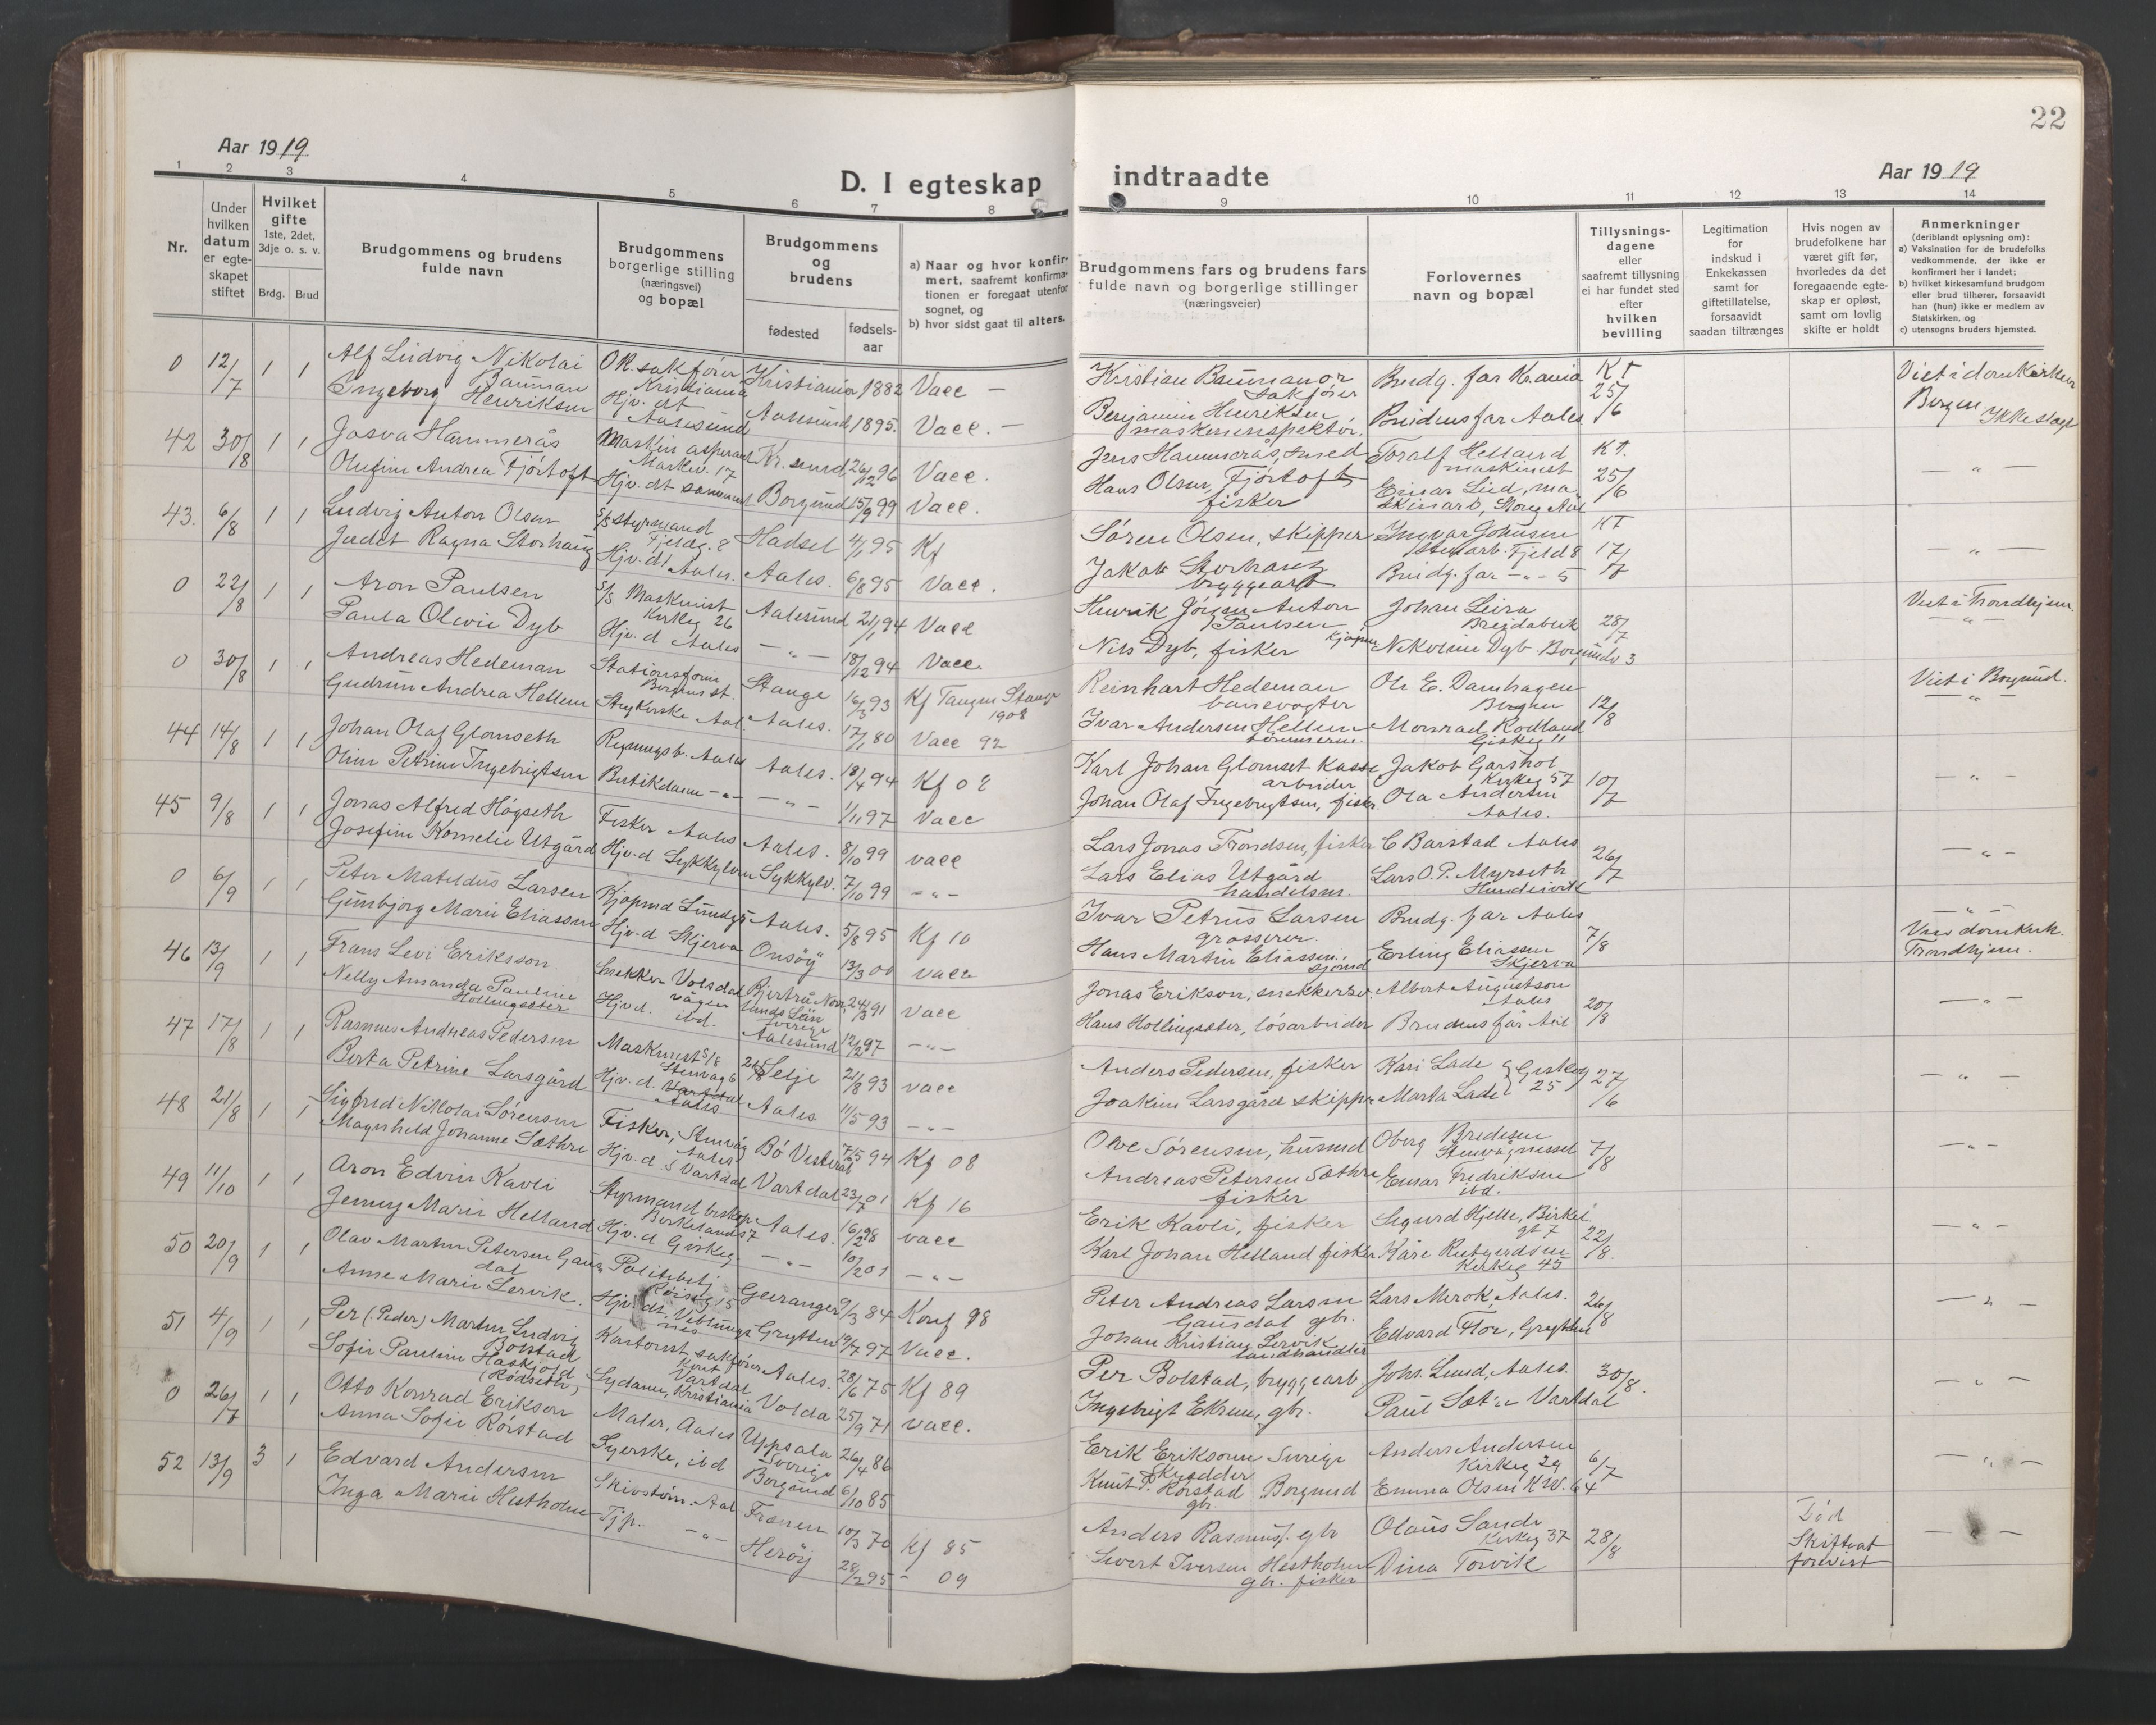 22
Aar 1919
D. I egteskap
indtraadte
Aar 1919
1 2 3 4 5 6 7 8
9 10 11 12 13 14
Nr.
Under hvilken datum er egteskapet stiftet
Hvilket gifte
1ste, 2det, 3dje o. s. v.
Brdg. Brud
Brudgommens og brudens
fulde navn
Brudgommens
borgerlige stilling
(næringsvei)
og bopæl
Brudgommens
og
brudens
fødested
fødsels-
aar
a) Naar og hvor konfir-
mert, saafremt konfirma-
tionen er foregaat utenfor
sognet, og
b) hvor sidst gaat til alters.
Brudgommens fars og brudens fars
fulde navn og borgerlige stillinger
(næringsveier)
Forlovernes
navn og bopæl
Tillysnings-
dagene
eller
saafremt tillysning
ei har fundet sted
efter
hvilken
bevilling
Legitimation
for
indskud i
Enkekassen
samt for
giftetillatelse,
forsaavidt
saadan tiltrænges
Hvis nogen av
brudefolkene har
været gift før,
hvorledes da det
foregaaende egte-
skap er opløst,
samt om lovlig
skifte er holdt
Anmerkninger
(deriblandt oplysning om):
a) Vaksination for de brudefolks
vedkommende, der ikke er
konfirmert her i landet;
b) hvilket kirkesamfund brudgom
eller brud tilhører, forsaavidt
han (hun) ikke er medlem av
Statskirken, og
c) utensogns bruders hjemsted.
0 12/7 1 1 Alf Ludvig Nikolai
Bauman
O.R. sakfører
Kristiania
Kristiania 1882 Vacc —
Ingeborg Henriksen
Hjv. dt
Aalesund
Aalesund 1895. Vacc. —
42 30/8 1 1 Josva Hammerås
Maskin aspirant
Markev. 17
Kr. sund 26/12 96 Vacc.
Olufine Andrea Fjörtoft
Hjv. dt sammest Borgund 15/9 99 Vacc.
43. 6/8 1 1 Ludvig Anton Olsen
S/S styrmand
Fjeldg. 8
Hadsel 4/1 95 Kf
Judit Ragna Storhaug
Hjv. dt Aales. Aales. 6/8 95 Vacc.
0 22/8 1 1 Aron Paulsen
S/S Maskinist
Kirkeg 26
Aalesund 21/1 94 Vacc
Paula Olevie Dyb
Hjv. d Aales — „ — 18/12 94 Vacc.
0 30/8 1 1 Andreas Hedeman
Stationsform
Bergens st.
Stange 16/3 93 Kf Tangen Stange
1908
Gudrun Andrea Hellem
Strykerske Aal. Aales. 17/1 80 Vacc 92
44 14/8 1 1 Johan Olaf Glomseth
Regningsb. Aales Aales. 18/4 94 Kf 08
Oline Petrine Ingebrigtsen
Butikdame — „ — — „ — 1/11 97 Vacc
45 9/8 1 1 Jonas Alfred Högseth
Fisker Aales Aales. 8/10 99 vacc
Josefine Kornelie Utgård
Hjv. d Sykkylven Sykkylv. 7/10 99 — „ —
0 6/9 1 1 Peter Mateldus Larsen
Kjøpmd Aales. 5/8 95 Kf 10
Gunbjorg Marie Eliassen
Hjv. d Skjerva Onsöy 13/3 00 vacc
46 13/9 1 1 Frans Levi Erikson
Snekker Volsdal
vågen
Bjertrå Norr
lands Län
Sverige
24/3 91 vacc
Nelly Amanda Pauline
Hollingsæter
Hjv. d. ibd. Aalesund 12/2 97 — „ —
47 17/8 1 1 Rasmus Andreas Pedersen
Maskinist S/S
Stenvåg 6
Selje 21/8 93 vacc
Berta Petrine Larsgård
Hjv. d. Vartdal
Aales
Aales 11/5 93 — „ —
48 21/8 1 1 Sigfred Nikolai Sörensen
Fisker, Stenvåg
Aales
Bö Vesterål 7/5 94 Kf 08
Magnhild Johanne Sæthre
Hjv. d. S Vartdal Vartdal 23/7 01 Kf 16
49 11/10 1 1 Aron Edvin Kavli
Styrmand biskop
Birkelands 7
Aales. 16/2 98 vacc
Jenny Marie Helland
Hjv. d Giskeg — „ — 10/2 01 — „ —
50 20/9 1 1 Olav Martin Petersen Gaus
dal
Politibetj
15
Geiranger 9/3 84 Konf 98
Anne Marie Lervik.
Hjv. dt. Veblungs
nes
Grytten 19/7 97 Vacc.
51 4/9 1 1 Per (Peder) Martin Ludvig
Bolstad
Kontorist sakfører
Kont
Vartdal
Aales. 28/6 75 Kf 89
Sofie Pauline Haskjold
(Rödseth)
Sydame, Kristiania Volda 25/9 71 vacc.
0 26/7 1 1 Otto Konrad Erikson
Maler, Aales Uppsala
Sverige
26/4 86
Anna Sofie Rörstad
Syerske, ibd Borgund 6/10 85
52 13/9 3 1 Edvard Andersen
Skivstörn. Aal Frænen 10/3 70 Kf 85
Inga Marie Hestholm
Tjp. — „ — Heröy 28/2 95 - 09
Kristian Baumann or
Sakförer
Brudg. far Kr.ania
K T
25/6
Viet i domkirken
Bergen
Ikke slagt
Benjamin Henriksen
maskininspektör.
Brudens far Aales.
Jens Hammerås, smed Toralf Helland
maskinist
K T.
25/6
— „ —
Hans Olsen, Fjörtoft
fisker
Einar Lied, ma
skinarb, Storg Aal
Sören Olsen, skipper Ingvar Johansen
Stenarb. Fjeld 8
K T
17/7
— „ —
Jakob Storhaug
bryggearb
Brudg. far — „ — 5
Henrik Jörgen Anton
Paulsen
Kjöpm
Johan Leira
Breidablik
28/7
Viet i Trondhjem.
— „ —
Nils Dyb, fisker Nikoline Dyb. Borgundv 3
Reinhart Hedeman
banevogter
Ole E. Damhagen
Bergen
12/8
Viet i Borgund.
— „ —
Ivar Andersen Hellem
tömmerm.
Monrad Rodland
Giskeg 11
Karl Johan Glomset Kasse
arbeider
Jakob Garshol
Kirkeg 57
10/7
— „ —
Johan Olaf Ingebrigtsen, fisker Ola Andersen
Aales.
Lars Jonas Trondsen, fisker C Barstad Aales
26/7
— „ —
Lars Elias Utgård
handelsm.
Lars O. P. Myrseth
Hundeivik
Ivar Petrus Larsen
grosserer.
Brudg. far Aales
7/8
— „ —
Viet domkirk.
Trondhjem.
Hans Martin Eliassen.
sjömd
Erling Eliassen
Skjerva
Jonas Erikson, snekkersv. Albert Augustson
Aales
20/8
— „ —
Hans Hollingsæter, lösarbeider Brudens far Aal
Anders Pedersen, fisker Kari Lade
Giskeg 25
27/6
— „ —
Joakim Larsgård skipper Marta Lade
Olve Sörensen, husmd Oberg Bredesen
Stenvågnesset
7/8
— „ —
Andreas Petersen Sæthre
fisker
Einar Fredriksen
ibd.
Erik Kavli, fisker Sigurd Hjelle, Birkel.
gt 7
22/8.
— „ —
Karl Johan Helland fisker Kåre Rutgerdsen
Kirkeg 45
Peter Andreas Larsen
Gausdal gbr.
Lars Merok, Aales.
26/8
— „ —
Johan Kristian Lervik
landhandler
Edvard Flor, Grytten
Per Bolstad, bryggearb. Johs. Lund, Aales.
30/8.
— „ —
Ingebrigt Ekrem, gbr. Paul Sæt Vartdal
Erik Eriksonn Sverige
Skrædder
Anders Andersen
Kirkeg 29
6/7
— „ —
Knut P. Rörstad Borgund
gbr.
Emma Olsen K W. 64
Anders Rasmus. gbr Olaus Sande
Kirkeg 37
28/8
Död
Skifteat
forevist
— „ —
Sivert Iversen Hestholm
gbr. fisker
Dina Torvik